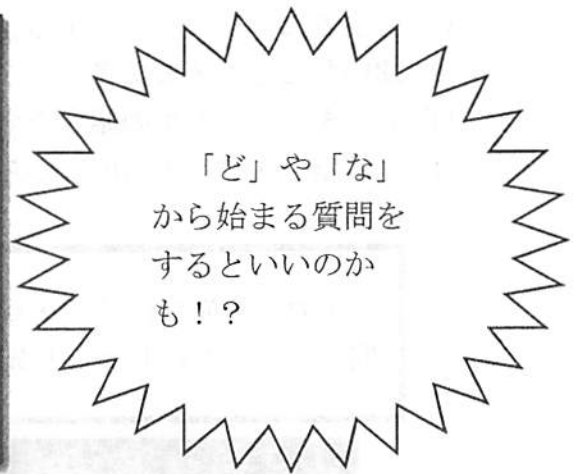 「ど」や「な」
から始まる質問を
するといいのか
も！？